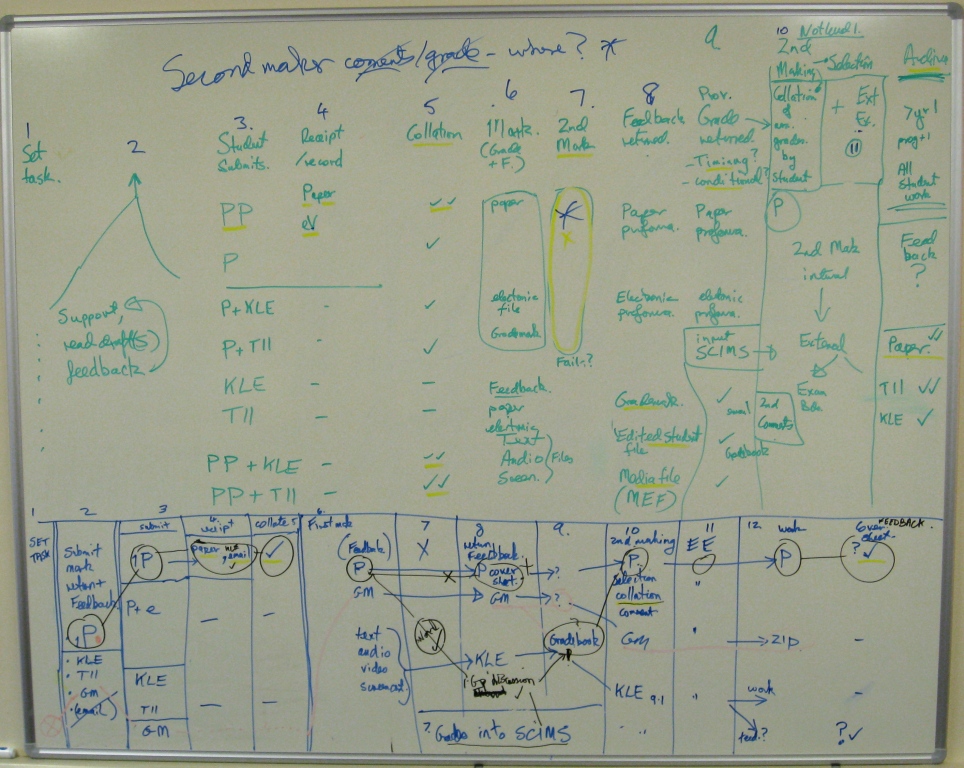 Second marker coments/grade - where? *
1
Set task.
2
Support,
read draft(s)
feedback
3.
Student
submits.
PP
P
P + KLE
P + TII
KLE
TII
PP + KLE
PP + TII
4
Receipt
/record
Paper
-
-
-
-
-
-
5
Collation
✓✓
✓
✓
✓
-
-
✓✓
✓✓
6
Mark.
(Grade
+ F.)
paper
electronic
file
Grademark
Feedback.
paper
electronic
Text
Audio
Screen.
Files
7.
2nd
Mark
Fail?
8
Feedback
returned.
Paper
proforma.
Electronic
proforma.
Grademark.
Edited student
file
Media file
(MEF)
9
Prov.
Grade
returned.
- Timing?
- conditional?
Paper
proforma.
eletronic
proforma.
input
SCIMS
✓
email
✓
Gradebook
✓
10 Not level 1.
2nd
Marking
Selection
Collation
of
grades.
by
student
+ Ext
Ex.
11
P
2nd Mark
internal
External
Exam
2nd
Coments
Archive
7 yr!
All
Student
work
Feed
back
?
Paper. ✓✓
TII ✓✓
KLE ✓
1
SET
TASK
2
Submit
mark
return +
Feedback
P
• KLE
• TII
• GM
• (email)
3
submit
P
P + e
KLE
TII
GM
4.
receipt
paper
email
-
-
collate 5
✓
-
-
6.
First mark
(Feedback)
P
GM
text
audio
video
screencast
7
X
work
✓
8
return
Feedback.
P cover
sheet. +
GM
KLE
Gp discussion
✓
? Grades into SCIMS
9.
?
?
?
Gradebook
10
2nd marking
P.
selection
collation
comment
GM
KLE 9.1
11
EE
"
"
"
12. work
P
ZIP
work
feed.?
FEEDBACK.
Cover
sheet.
? ✓
-
-
? ✓